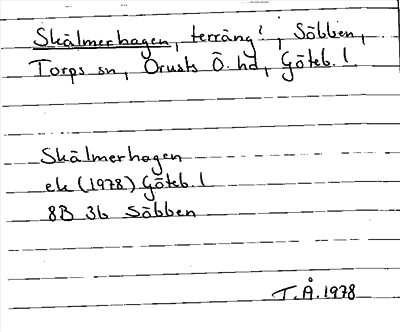 Skälmerhagen, terräng?, Säbben,
Torps sn, Orusts Ö. hd, Göteb. l.
Skälmerhagen
ek (1978) Göteb. l
8B 3b Säbben
T.Å. 1978